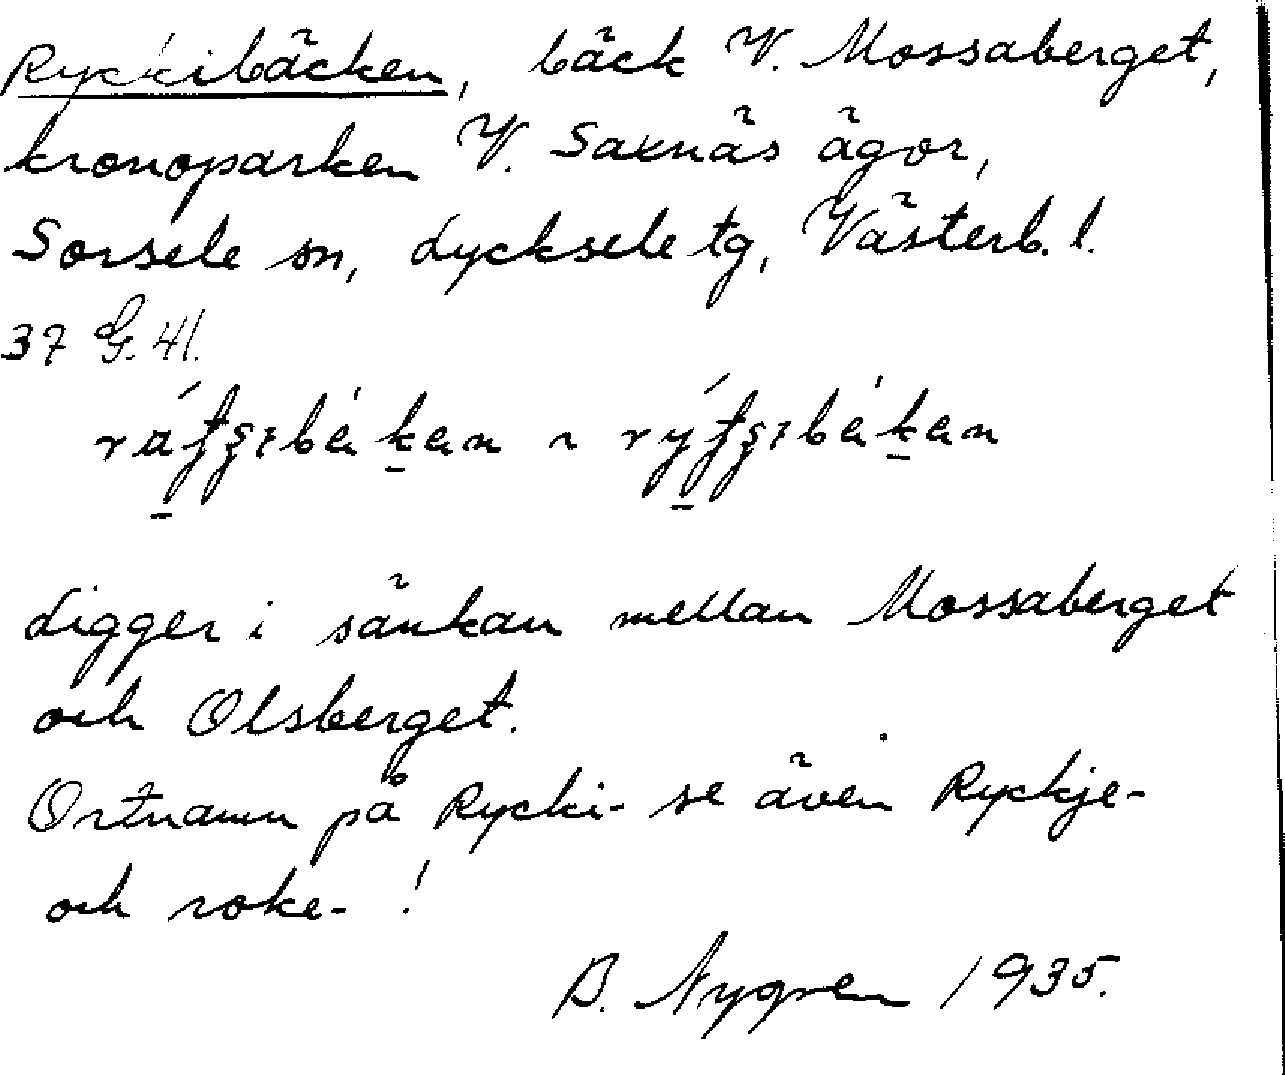 Ryckibäcken, bäck V. Mossaberget,
kronoparken V. Saxnäs ägor,
Sorsele sn, Lycksele tg, Västerb. l.
37 G. 41.
Ligger i sänkan mellan Mossaberget
och Olsberget.
Ortnamn på Rycki- se även Ryckje-
och roke- !
B. Nygren 1935.